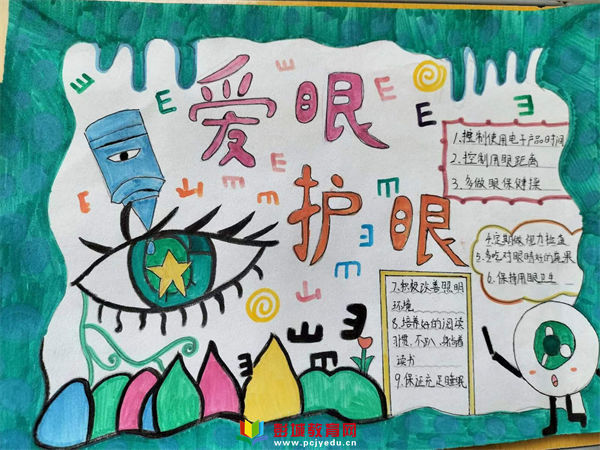 爱眼
护眼
1、控制使用电子产品时间
2、控制用眼距离
3、多做眼保健操
4.定期做视力检查
5.多吃对眼睛好的蔬果
6.保持用眼卫生
7.积极改善照明
环境
8.培养好的阅读
习惯、不趴、躺着
读书
9.保证充足睡眠
彭城教育网
www.pcjyedu.cn